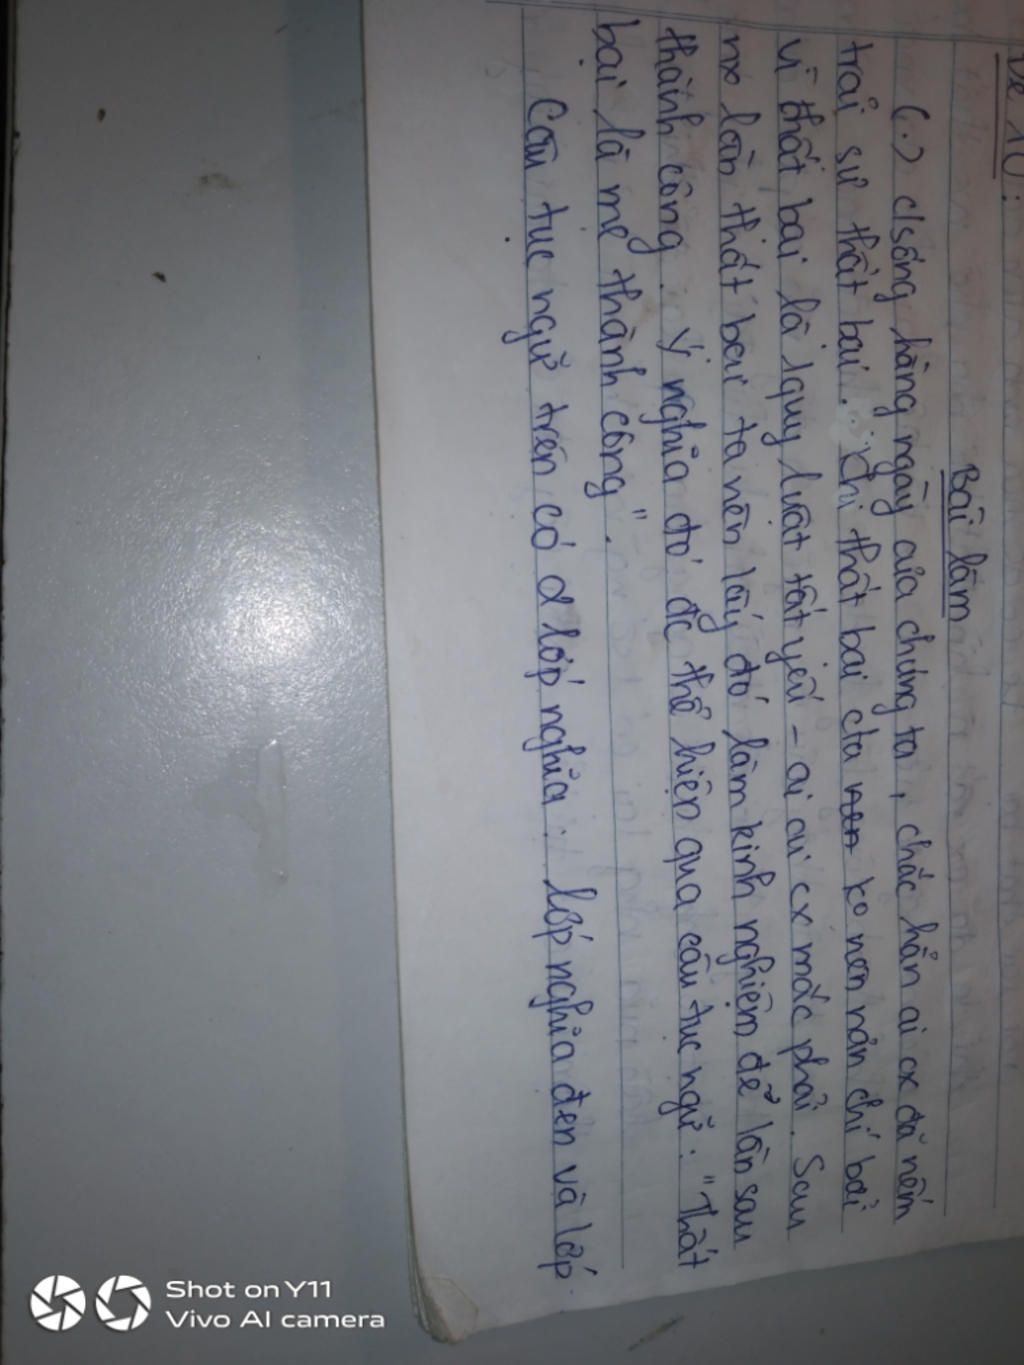 Đề 10:
Bài làm
(.) c/sống hằng ngày của chúng ta, chắc hẳn ai cx đã nếm
trải sự thất bại. Khi thất bại cta ko nên nản chí bởi
vì thất bại là 1 quy luật tất yếu - ai ai cx mắc phải. Sau
mỗi lần thất bại ta nên lấy đó làm kinh nghiệm để lần sau
thành công. Ý nghĩa đó đc thể hiện qua câu tục ngữ: "Thất
bại là mẹ thành công".
Câu tục ngữ trên có 2 lớp nghĩa: lớp nghĩa đen và lớp
Shot on Y11
Vivo AI camera